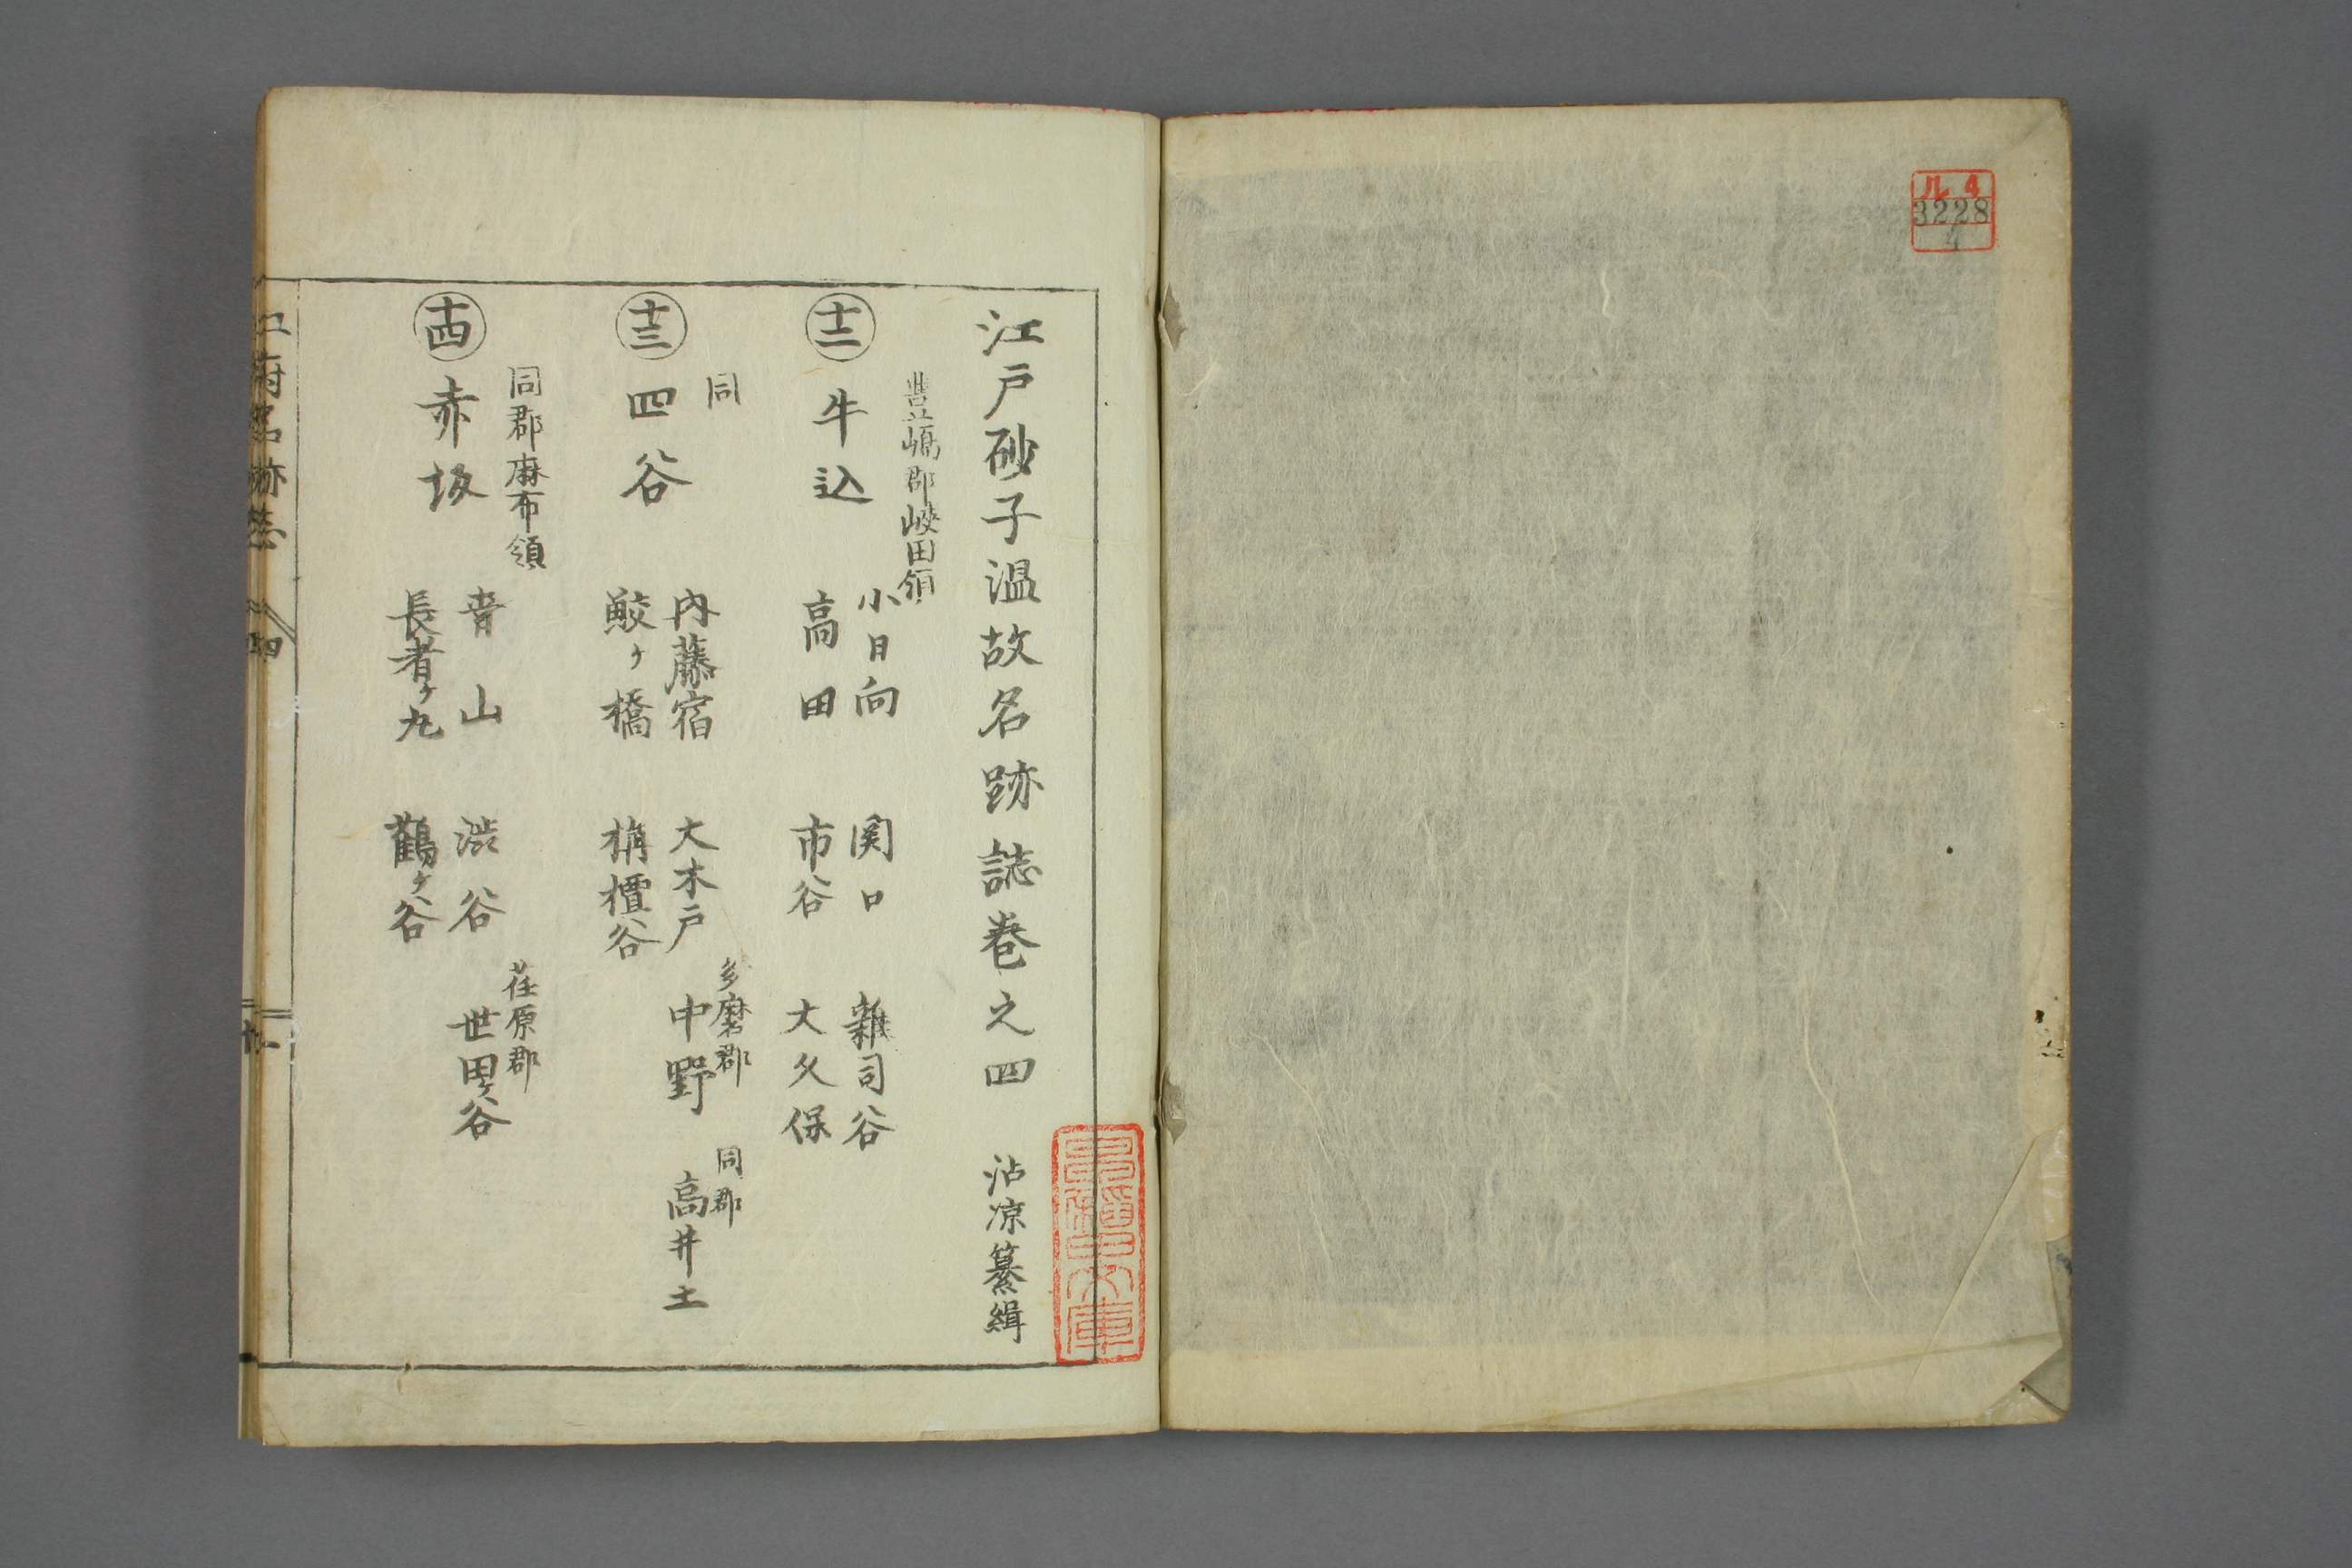 ル4
3228
4
江戸砂子温故名跡誌巻之四 沾凉纂緝
豊嶋郡峡田領
十二 牛込 小日向 関口 雑司谷
高田 市谷 大久保
同
十三 四谷 内藤宿 大木戸 中野 高井土
多磨郡 同郡
鮫ヶ橋 栴檀谷
同郡麻布領
十四 赤坂 青山 渋谷 世田ヶ谷
荏原郡
長者ヶ丸 鶴ヶ谷
江府名跡志 四